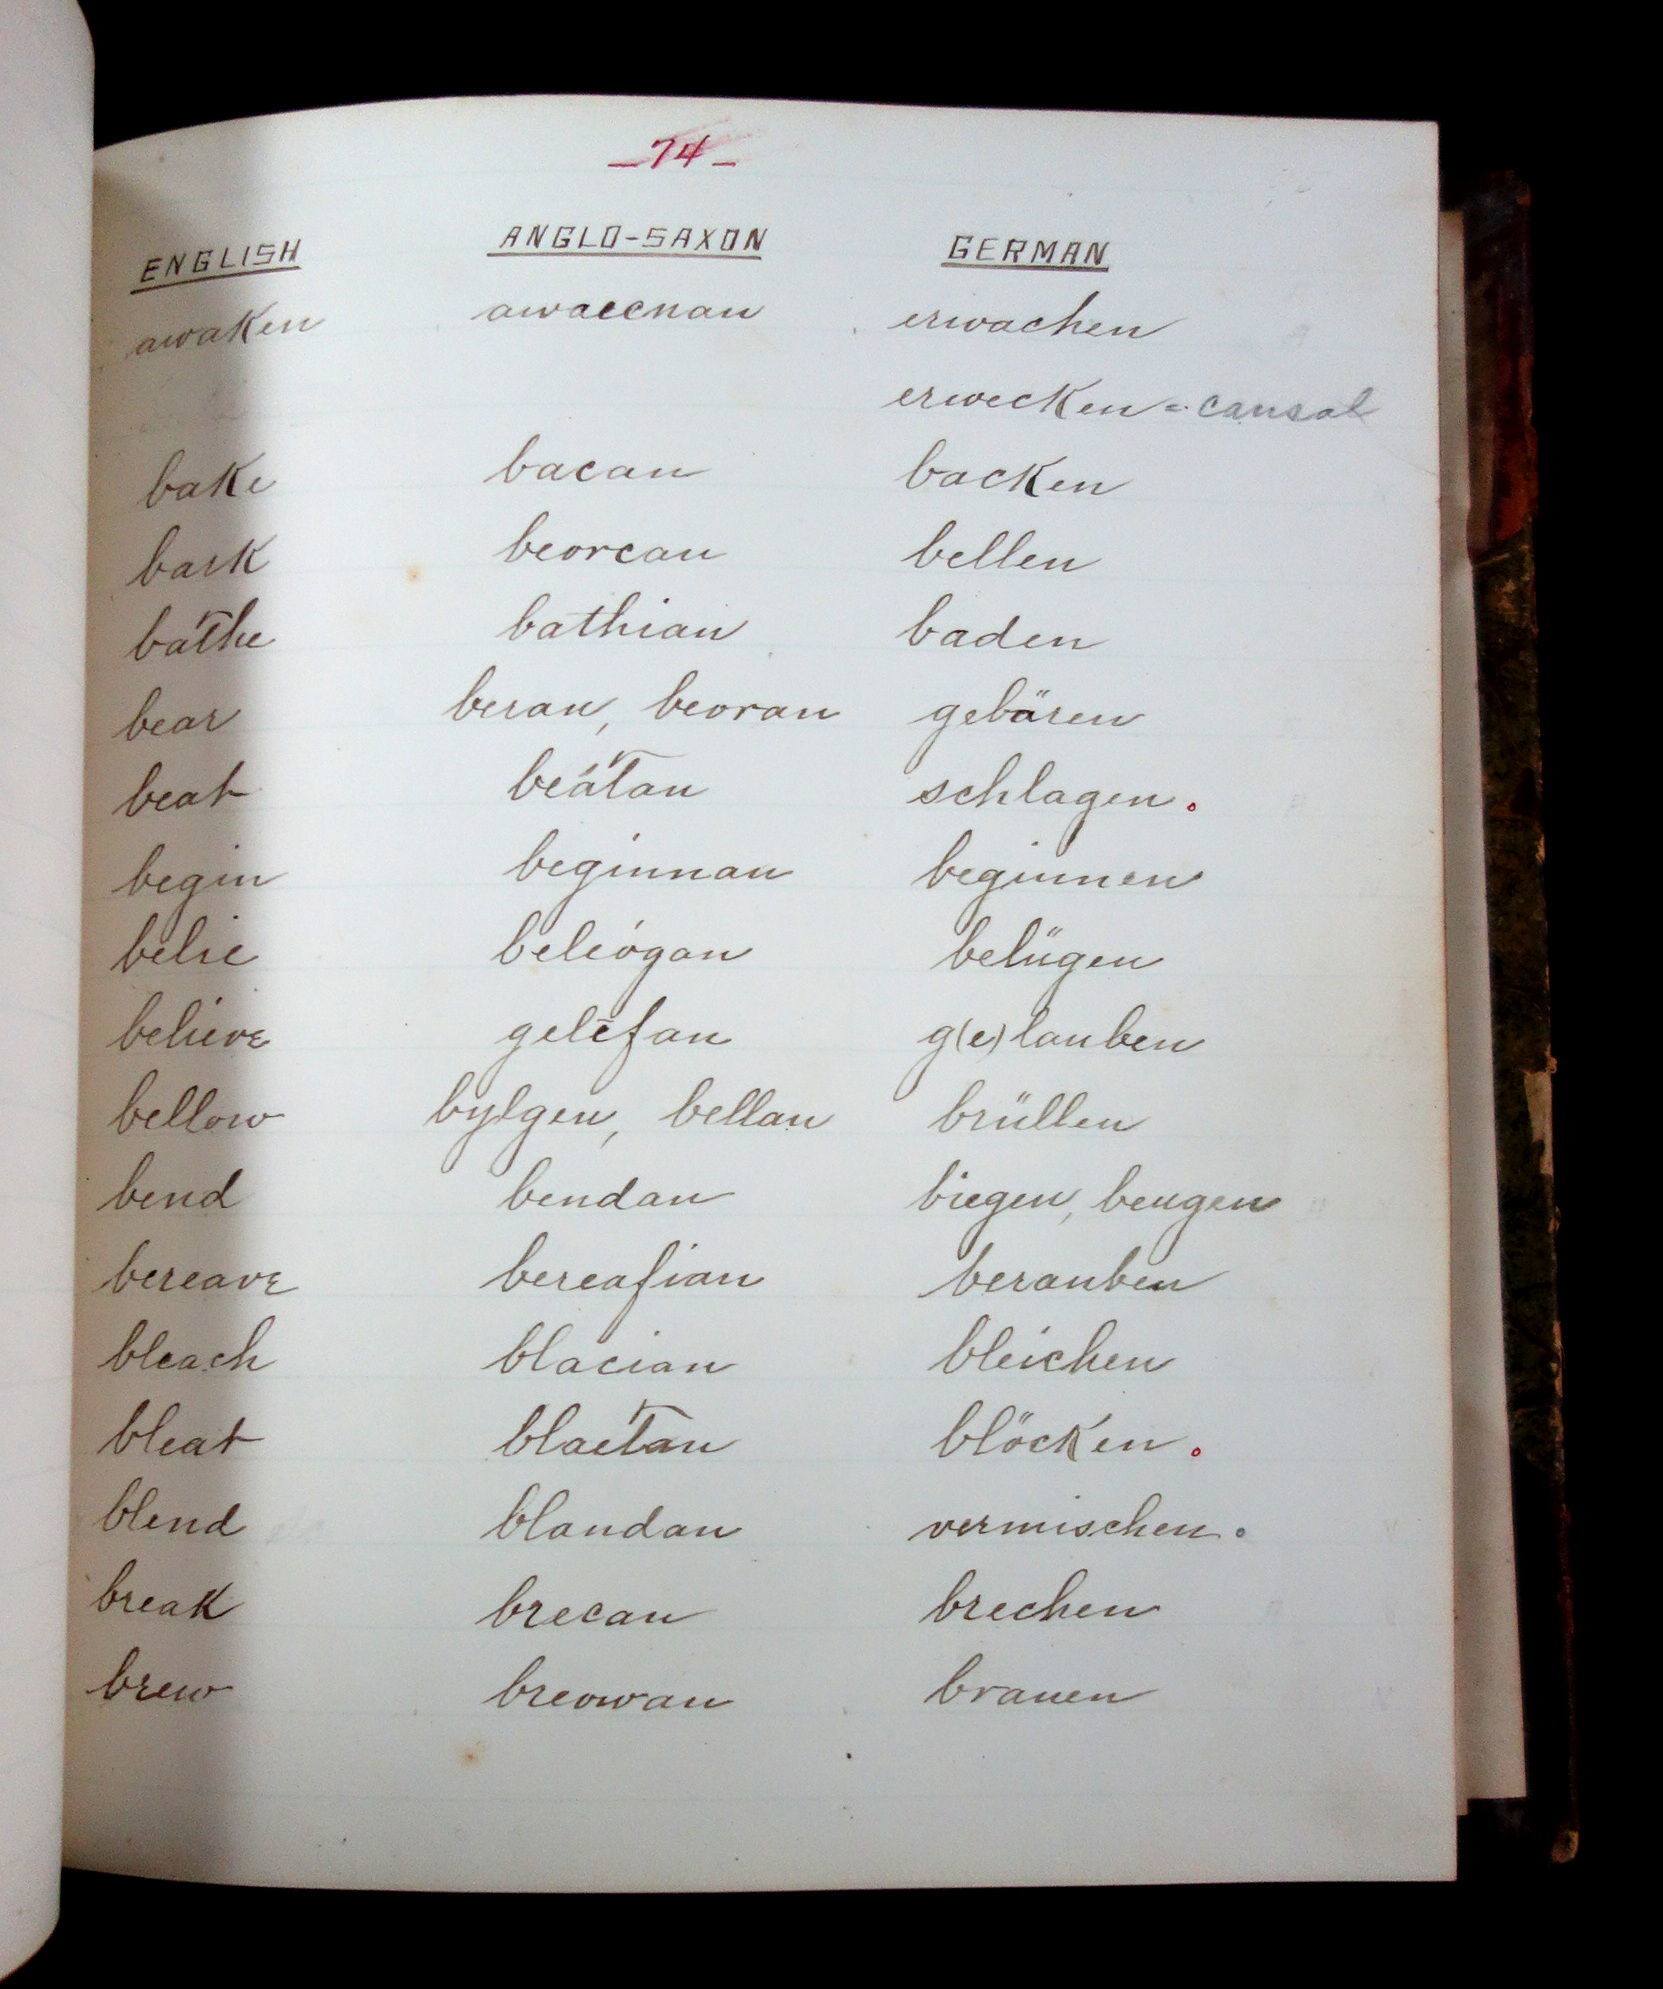 -74-
ENGLISH ANGLO-SAXON GERMAN
awaken awaecnan erwachen
erwecken = causal
bake bacan backen
bark beorcan bellen
bathe bathian baden
bear beran, beoran gebären
beat beátan schlagen.
begin beginnan beginnen
belie beleógan belügen
believe gelēfan g(e)lauben
bellow bylgen, bellan brüllen
bend bendan biegen, beugen
bereave bereafian berauben
bleach blacian bleichen
bleat blaetan blöcken.
blend blandan vermischen.
break brecan brechen
brew breowan brauen